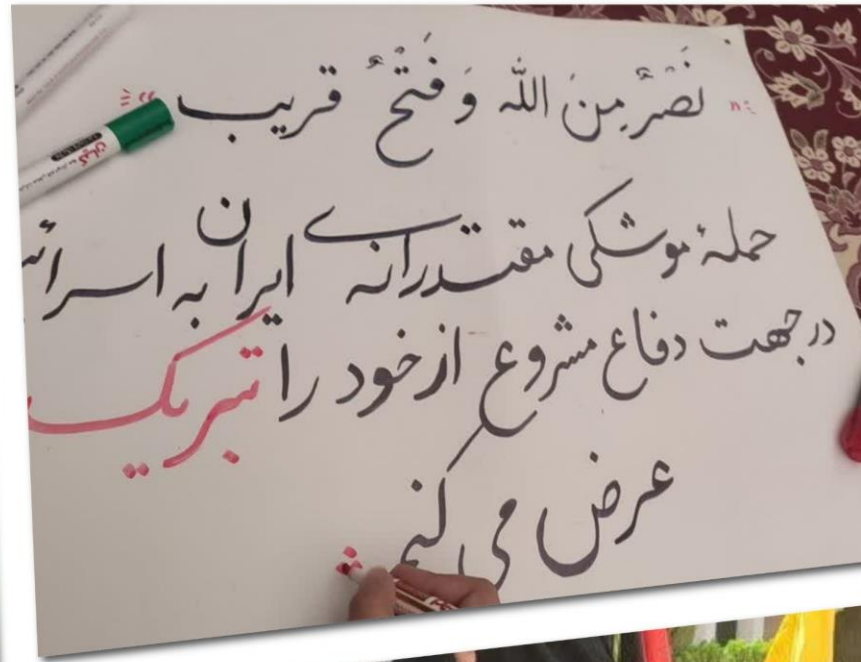 نَصْرٌ مِنَ الله وَ فَتْحٌ قریب
حملهٔ موشکی مقتدرانه ی ایران به اسرائ
در جهت دفاع مشروع از خود را تبریک
عرض می کنم